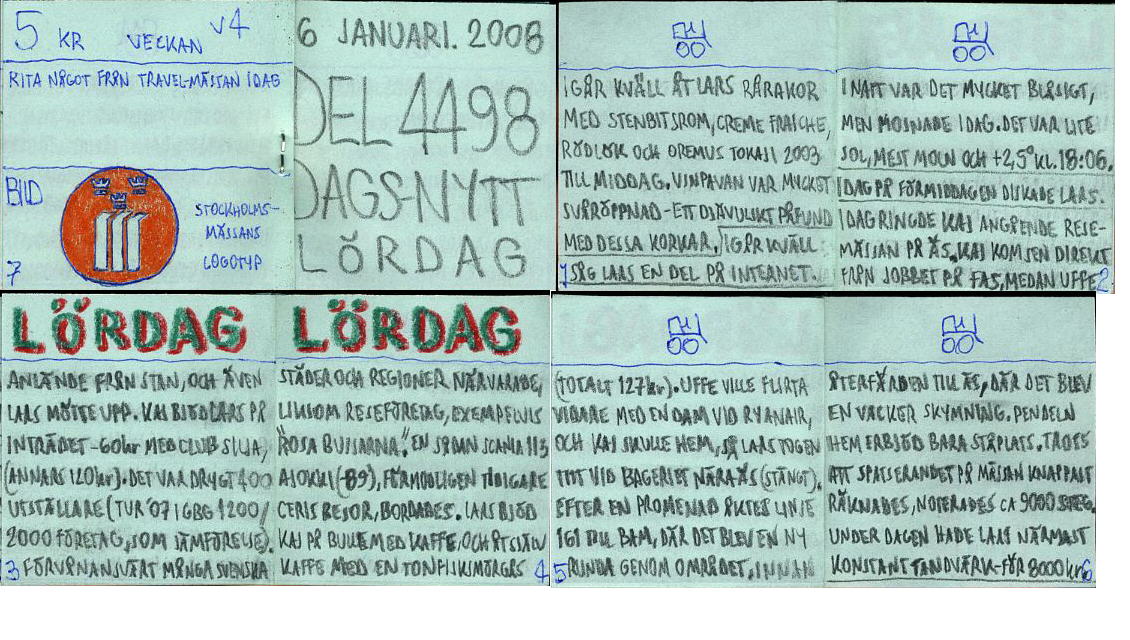 5 KR VECKAN V4
RITA NÅGOT FRÅN TRAVEL-MÄSSAN IDAG
BILD
STOCKHOLMS-
MÄSSANS
LOGOTYP
7
6 JANUARI. 2008
DEL 4498
DAGS-NYTT
LÖRDAG
IGÅR KVÄLL ÅT LARS RÅRAKOR
MED STENBITSROM, CREME FRAICHE,
RÖDLÖK OCH OREMUS TOKAJI 2003
TILL MIDDAG. VINPAVAN VAR MYCKET
SVÅRÖPPNAD-ETT DJÄVULSKT PÅFUND
MED DESSA KORKAR. IGÅR KVÄLL
1 SÅG LARS EN DEL PÅ INTERNET.
INATT VAR DET MYCKET BLÅSIGT,
MEN MOJNADE IDAG. DET VAR LITE
SOL, MEST MOLN OCH +2,5° kl. 18:06.
IDAG PÅ FÖRMIDDAGEN DISKADE LARS.
IDAG RINGDE KAJ ANGÅENDE RESE-
MÄSSAN PÅ ÄS. KAJ KOM SEN DIREKT
FRÅN JOBBET PÅ FAS, MEDAN UFFE 2
LÖRDAG
ANLÄNDE FRÅN STAN, OCH ÄVEN
LARS MÖTTE UPP. KAJ BJÖD LARS PÅ
INTRÄDET-60kr MED CLUB SILJA,
(ANNARS 120kr). DET VAR DRYGT 400
UTSTÄLLARE (TUR '07 I GBG 1200/
2000 FÖRETAG, SOM JÄMFÖRELSE).
3 FÖRVÅNANSVÄRT MÅNGA SVENSKA
LÖRDAG
STÄDER OCH REGIONER NÄRVARADE,
LIKSOM RESEFÖRETAG, EXEMPELVIS
"ROSA BUSSARNA". EN SÅDAN SCANIA 113
(-89), FÖRMODLIGEN TIDIGARE
RESOR, BORDADES. LARS BJÖD
KAJ PÅ BULLE MED KAFFE, OCH ÅT SJÄLV
KAFFE MED EN TONFISKSMÖRGÅS 4
(TOTALT 127kr). UFFE VILLE FLIRTA
VIDARE MED EN DAM VID RYANAIR,
OCH KAJ SKULLE HEM, SÅ LARS TOG EN
TITT VID BAGERIET NÄRA ÄS (STÄNGT).
EFTER EN PROMENAD ÅKTES LINJE
161 TILL BAM, DÄR DET BLEV EN NY
5 RUNDA GENOM OMRÅDET, INNAN
ÅTERFÄRDEN TILL ÄS, DÄR DET BLEV
EN VACKER SKYMNING. PENDELN
HEM ERBJÖD BARA STÅPLATS. TROTS
ATT SPATSERANDET PÅ MÄSSAN KNAPPAST
RÄKNADES, NOTERADES CA 9000 STEG.
UNDER DAGEN HADE LARS NÄRMAST
KONSTANT TANDVÄRK-FÖR 8000 kr 6